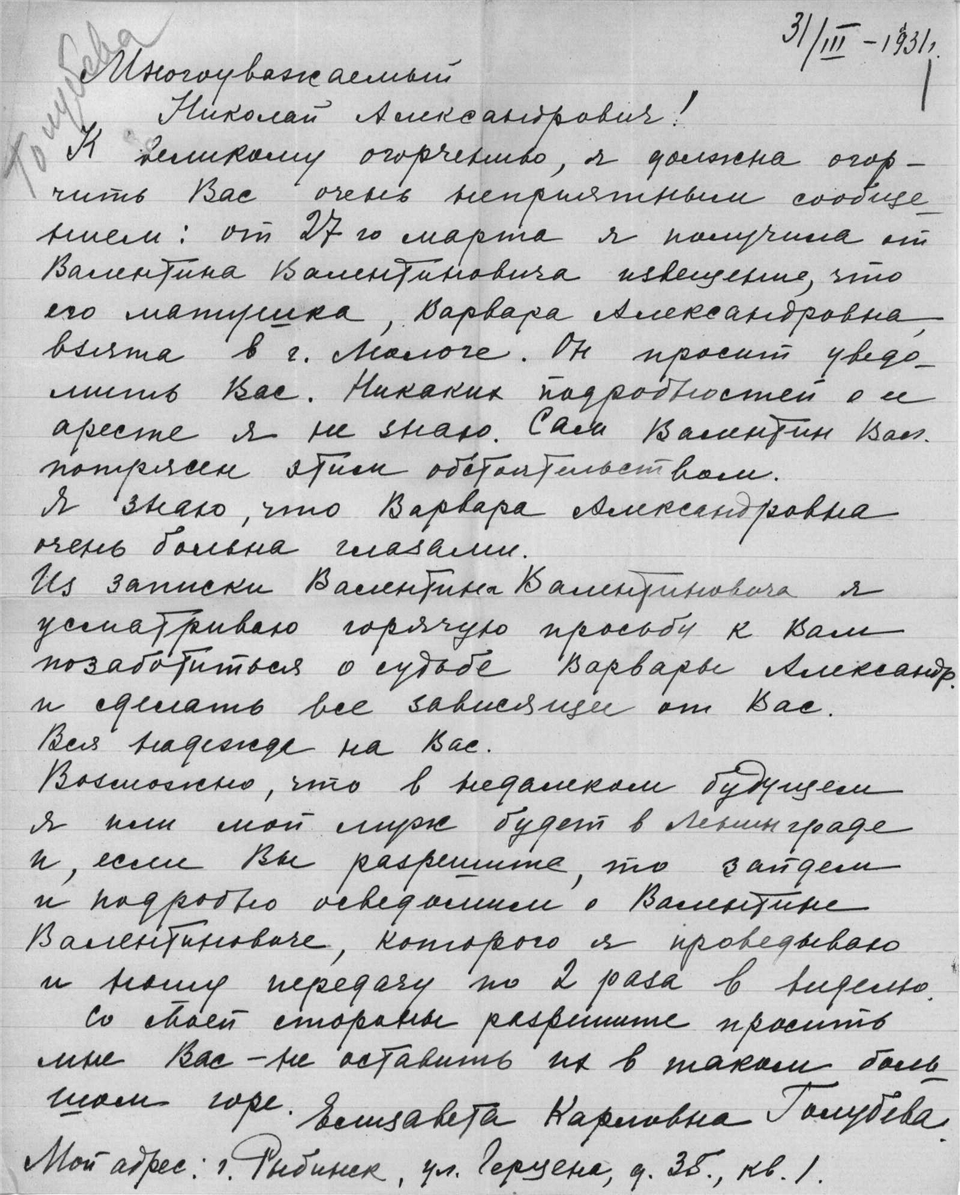 31/III – 1931 г.
Голубева
Многоуважаемый
Николай Александрович!
К великому огорченью, я должна огор-
чить Вас очень неприятным сообще-
нием: от 27го марта я получила от
Валентина Валентиновича извещение, что
его матушка, Варвара Александровна,
взята в г. Мологе. Он просит уведо-
мить Вас. Никаких подробностей о ее
аресте я не знаю. Сам Валентин Вал.
потрясен этим обстоятельством.
Я знаю, что Варвара Александровна
очень больна глазами.
Из записки Валентина Валентиновича я
усматриваю горячую просьбу к Вам
позаботиться о судьбе Варвары Александр.
и сделать все зависящее от Вас.
Вся надежде на Вас.
Возможно, что в недалеком будущем
я или мой муж будет в Ленинграде
и, если Вы разрешите, то зайдем
и подробно осведомим о Валентине
Валентиновиче, которого я проведываю
и ношу передачу по 2 раза в неделю.
Со своей стороны разрешите просить
мне Вас – не оставить их в таком боль-
шом горе. Елизавета Карловна Голубева.
Мой адрес: г. Рыбинск, ул. Герцена, д. 3б., кв. 1.